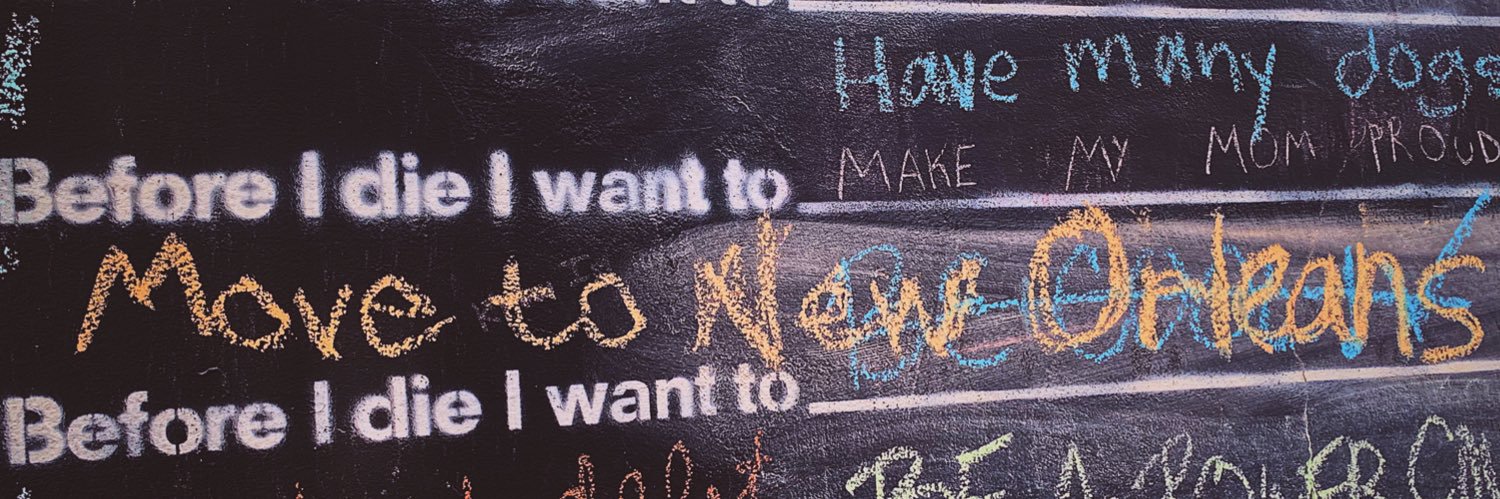 Have many dogs
MAKE MY MOM PROUD
Before I die I want to
Move to New Orleans
Before I die I want to
BE A POWER